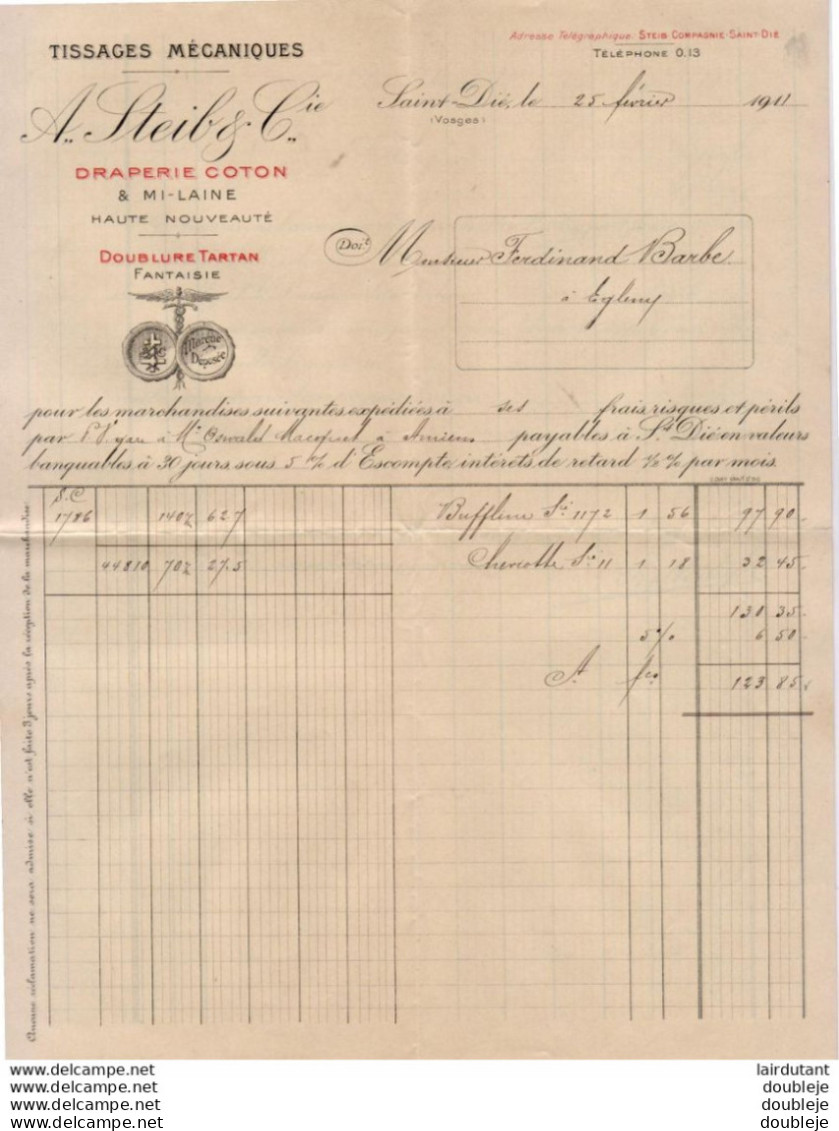 TISSAGES MÉCANIQUES
A. Steib & Cie
DRAPERIE COTON
& MI-LAINE
HAUTE NOUVEAUTÉ
DOUBLURE TARTAN
FANTAISIE
Marque Déposée
Adresse Télégraphique: STEIB-COMPAGNIE-SAINT-DIÉ
TÉLÉPHONE 0.13
Saint-Dié, le 25 février 1911
(Vosges)
Doit Monsieur Ferdinand Barbe
à Egleny
pour les marchandises suivantes expédiées à ses frais risques et périls
par à Mr Oswald à Amiens payables à St Dié en valeurs
banquables à 30 jours sous 5 % d'Escompte, intérêts de retard ½ % par mois.
S.C
1786 1407 62 7 1172 1 56 97 90
44810 707 27.5 11 1 18 32 45
130 35
5% 6 50
123 85
Aucune réclamation ne sera admise si elle n'est faite 3 jours après la réception de la marchandise
www.delcampe.net
www.delcampe.net
www.delcampe.net
www.delcampe.net
lairdutant
doubleje
doubleje
doubleje